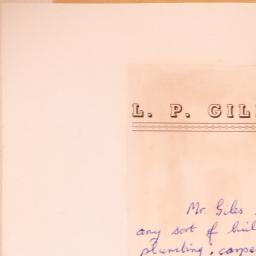 L. P. GIL
Mr. Giles
any sort of buil
plumbing, carpe